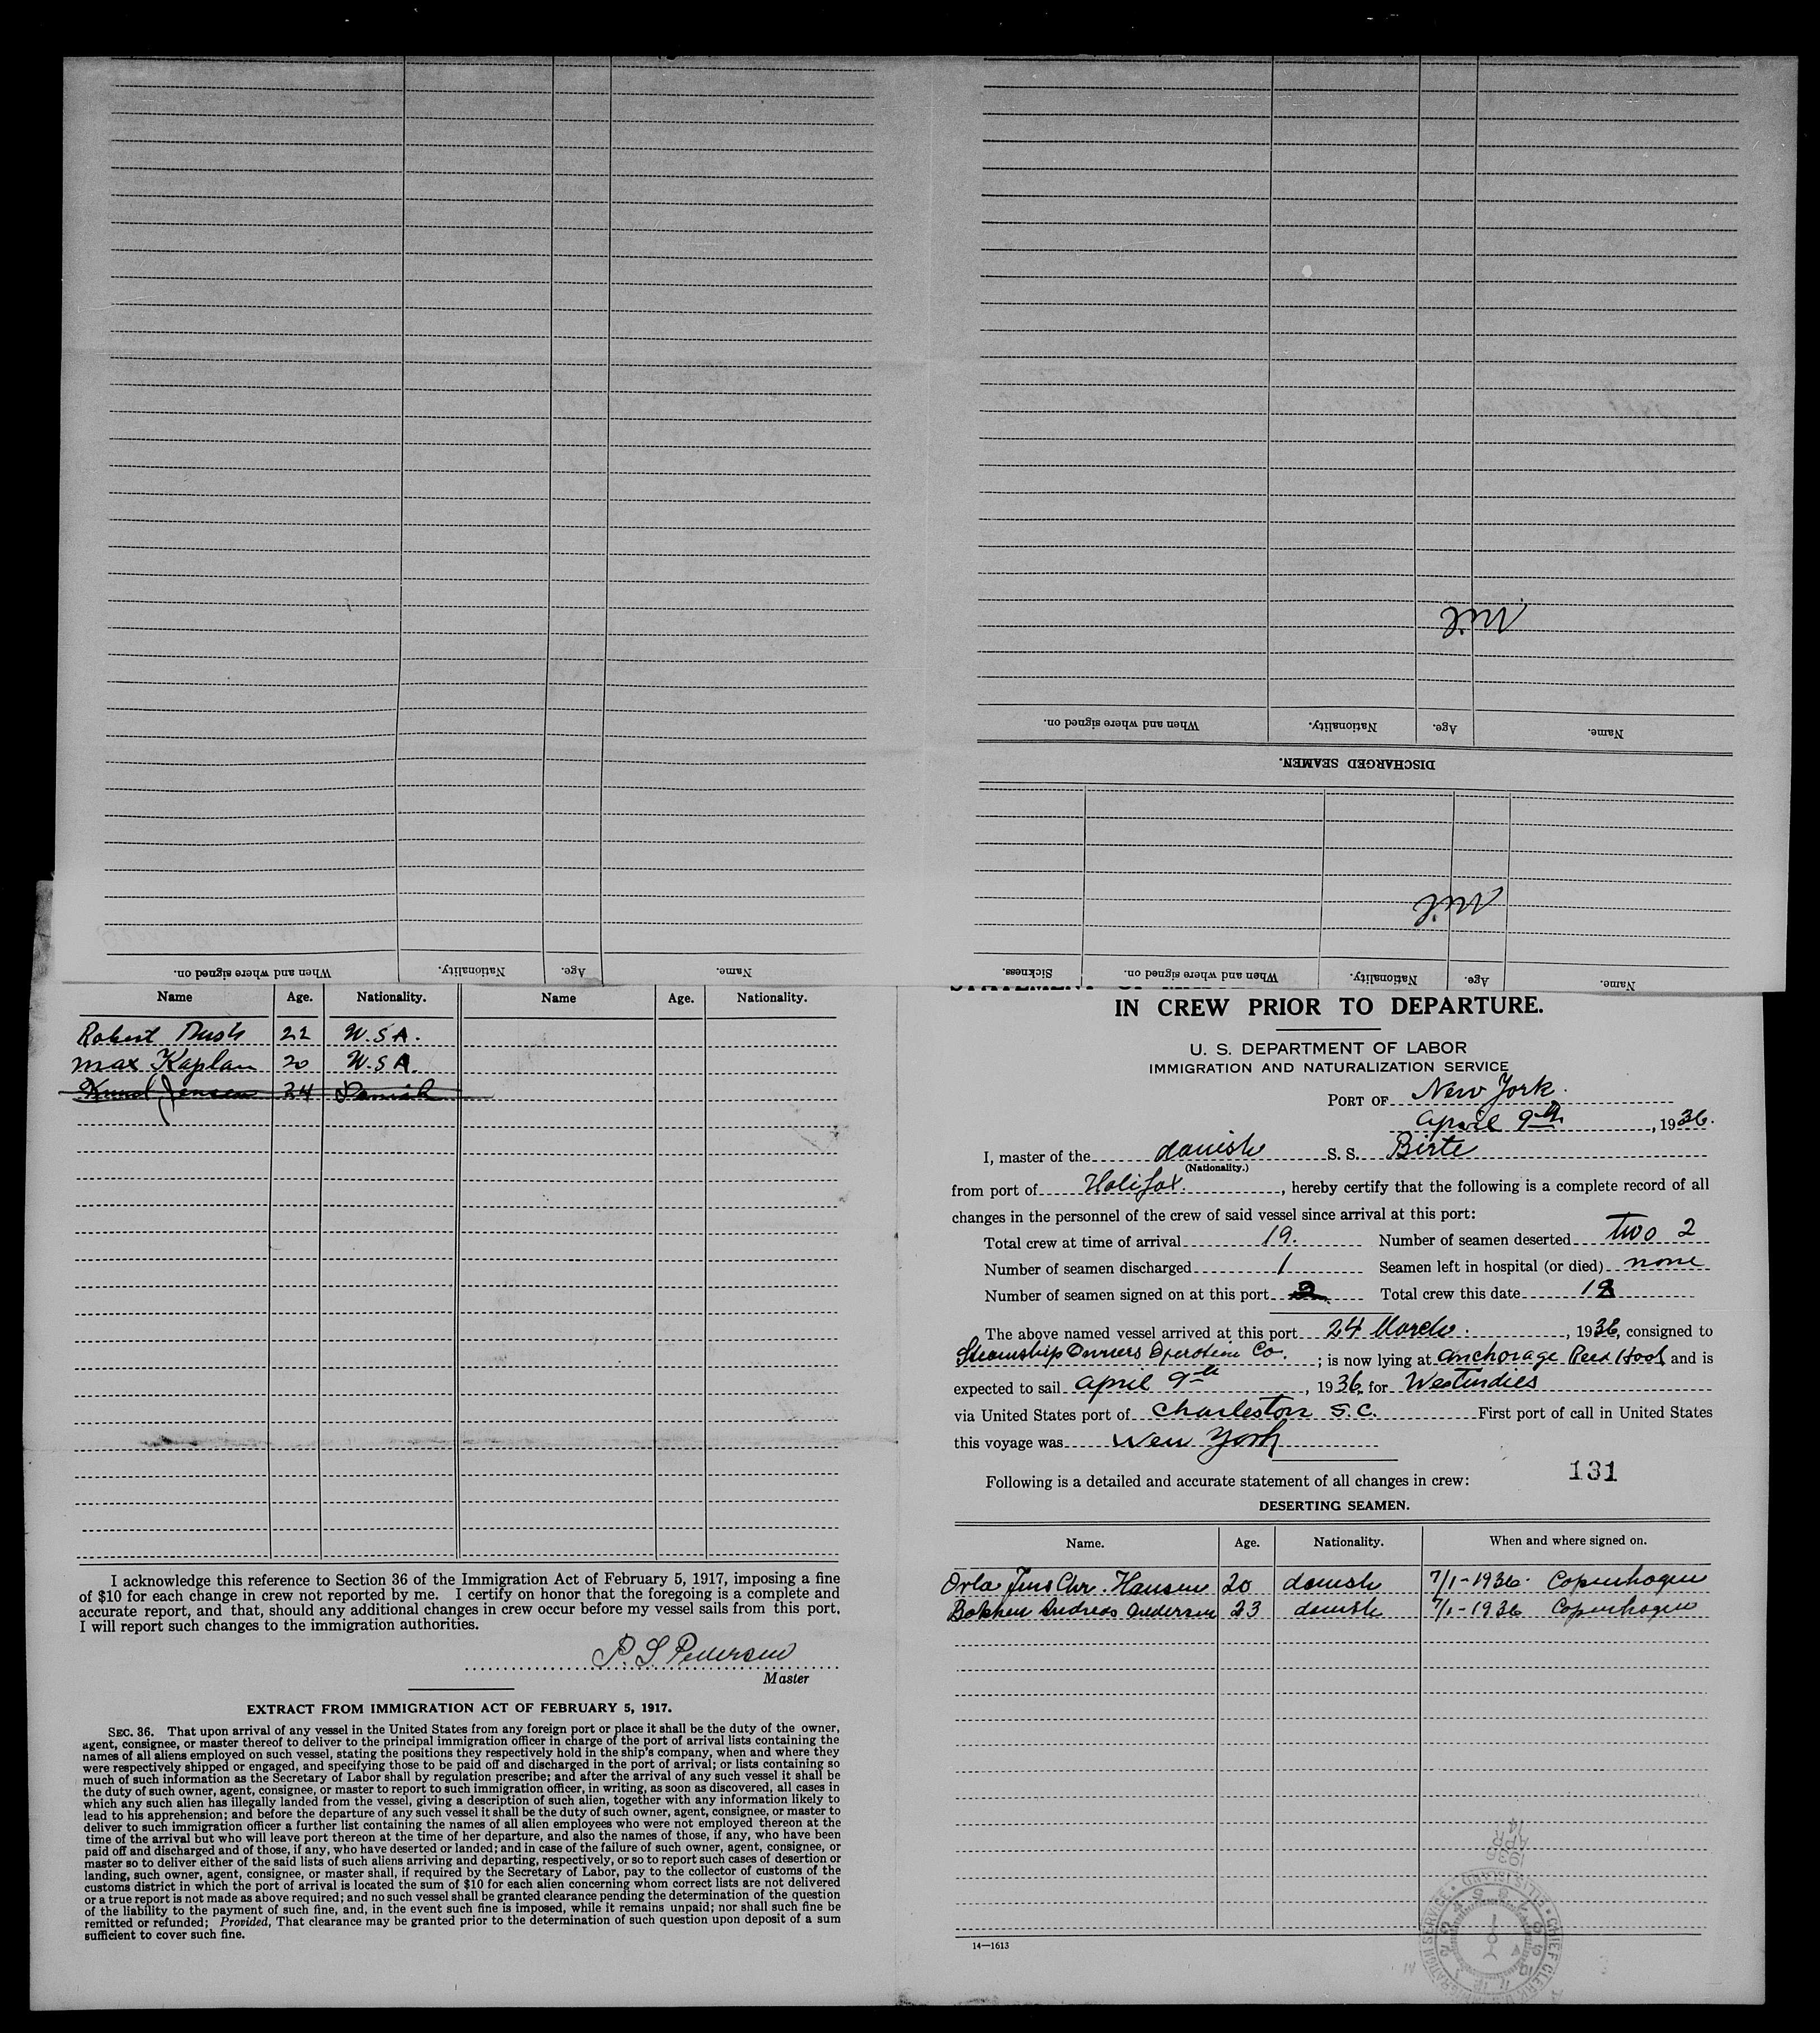 Name. Age. Nationality. When and where signed on.
Nil
DISCHARGED SEAMEN.
Name. Age. Nationality. When and where signed on.
Name. Age. Nationality. When and where signed on. Sickness.
Nil
Name Age. Nationality. Name Age. Nationality.
Robert 22 U.S.A.
Max Kaplan 20 U.S.A.
Knud Jensen 24 Danish
I acknowledge this reference to Section 36 of the Immigration Act of February 5, 1917, imposing a fine
of $10 for each change in crew not reported by me. I certify on honor that the foregoing is a complete and
accurate report, and that, should any additional changes in crew occur before my vessel sails from this port,
I will report such changes to the immigration authorities.
P. S. Petersen
Master
EXTRACT FROM IMMIGRATION ACT OF FEBRUARY 5, 1917.
SEC. 36. That upon arrival of any vessel in the United States from any foreign port or place it shall be the duty of the owner,
agent, consignee, or master thereof to deliver to the principal immigration officer in charge of the port of arrival lists containing the
names of all aliens employed on such vessel, stating the positions they respectively hold in the ship's company, when and where they
were respectively shipped or engaged, and specifying those to be paid off and discharged in the port of arrival; or lists containing so
much of such information as the Secretary of Labor shall by regulation prescribe; and after the arrival of any such vessel it shall be
the duty of such owner, agent, consignee, or master to report to such immigration officer, in writing, as soon as discovered, all cases in
which any such alien has illegally landed from the vessel, giving a description of such alien, together with any information likely to
lead to his apprehension; and before the departure of any such vessel it shall be the duty of such owner, agent, consignee, or master to
deliver to such immigration officer a further list containing the names of all alien employees who were not employed thereon at the
time of the arrival but who will leave port thereon at the time of her departure, and also the names of those, if any, who have been
paid off and discharged and of those, if any, who have deserted or landed; and in case of the failure of such owner, agent, consignee, or
master so to deliver either of the said lists of such aliens arriving and departing, respectively, or so to report such cases of desertion or
landing, such owner, agent, consignee, or master shall, if required by the Secretary of Labor, pay to the collector of customs of the
customs district in which the port of arrival is located the sum of $10 for each alien concerning whom correct lists are not delivered
or a true report is not made as above required; and no such vessel shall be granted clearance pending the determination of the question
of the liability to the payment of such fine, and, in the event such fine is imposed, while it remains unpaid; nor shall such fine be
remitted or refunded; Provided, That clearance may be granted prior to the determination of such question upon deposit of a sum
sufficient to cover such fine.
IN CREW PRIOR TO DEPARTURE.
U. S. DEPARTMENT OF LABOR
IMMIGRATION AND NATURALIZATION SERVICE
PORT OF New York.
April 9th, 1936.
I, master of the danish S. S. Birte
(Nationality.)
from port of Halifax., hereby certify that the following is a complete record of all
changes in the personnel of the crew of said vessel since arrival at this port:
Total crew at time of arrival 19. Number of seamen deserted two 2
Number of seamen discharged 1 Seamen left in hospital (or died) none
Number of seamen signed on at this port 2 Total crew this date 18
The above named vessel arrived at this port 24 March., 1936, consigned to
Steamship Owners Operation Co.; is now lying at anchorage Red Hook and is
expected to sail april 9th, 1936, for Westindies
via United States port of Charleston S.C. First port of call in United States
this voyage was New York
Following is a detailed and accurate statement of all changes in crew:
131
DESERTING SEAMEN.
Name. Age. Nationality. When and where signed on.
Orla Jens Chr. Hansen 20 danish 7/1-1936. Copenhagen
Andreas Andersen 23 danish 7/1-1936 Copenhagen
14—1613
1936
APR
14